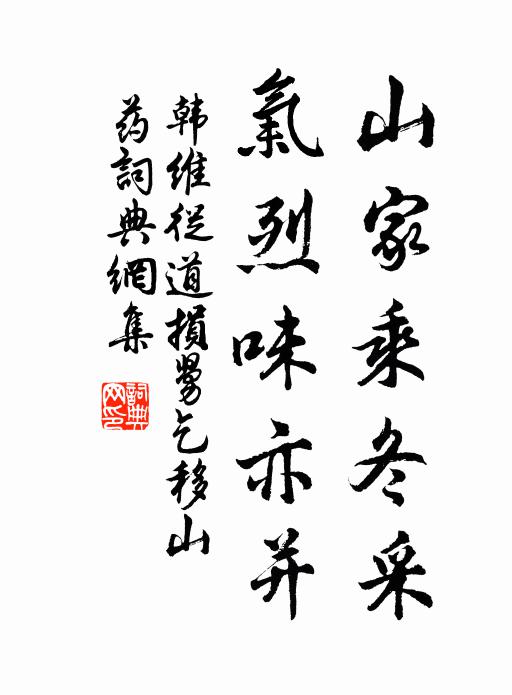 山家乘冬采
氣烈味亦并
韩维從道損舅乞移山
药詞典網集
詞典网印